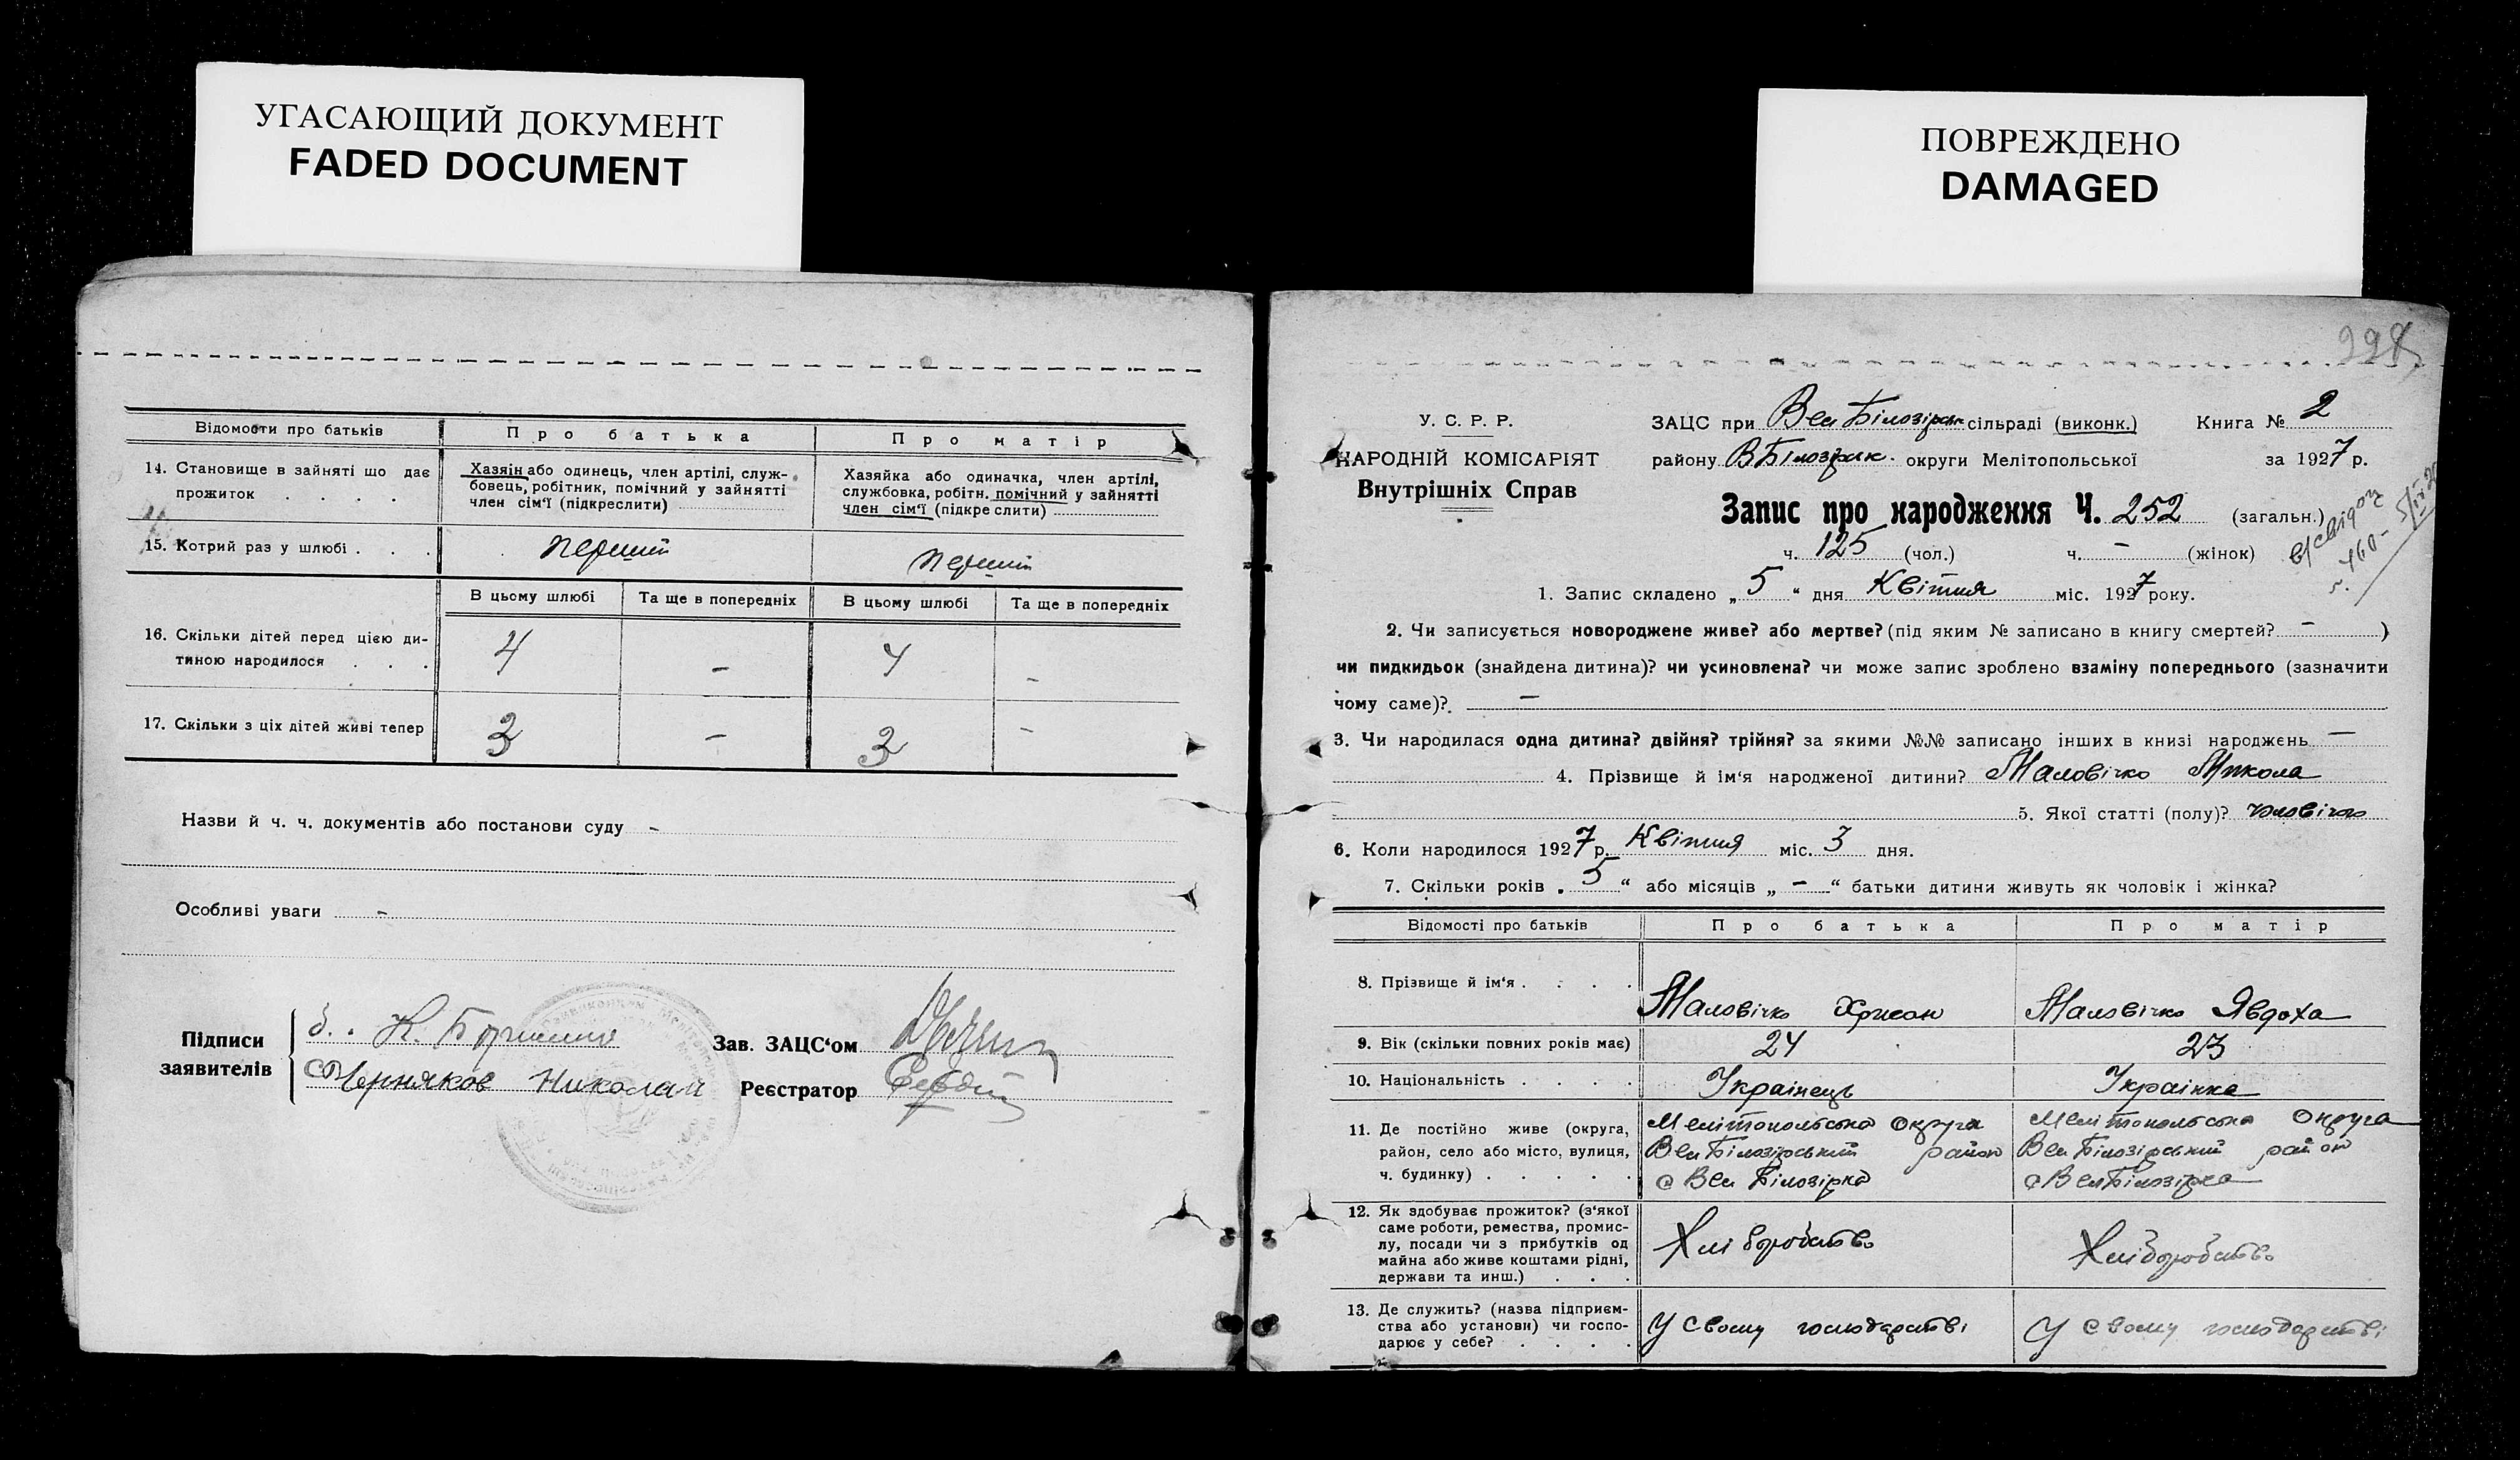 УГАСАЮЩИЙ ДОКУМЕНТ
FADED DOCUMENT
ПОВРЕЖДЕНО
DAMAGED
Відомости про батьків
Про батька
Про матір
14. Становище в зайняті що дає
прожиток . . . .
Хазяін або одинець, член артілі, служ-
бовець, робітник, помічний у зайнятті
член сім'ї (підкреслити)
Хазяйка або одиначка, член артілі,
службовка, робітн. помічний у зайнятті
член сім'ї (підкреслити)
15. Котрий раз у шлюбі . . .
перший
перший
В цьому шлюбі
Та ще в попередніх
В цьому шлюбі
Та ще в попередніх
16. Скільки дітей перед цією ди-
тиною народилося . . .
4 - 4 -
17. Скільки з ціх дітей живі тепер
3 - 3 -
Назви й ч. ч. документів або постанови суду -
Особливі уваги -
Підписи
заявителів
Черняков Николай
Зав. ЗАЦС'ом
Реєстратор
У. С. Р. Р.
НАРОДНІЙ КОМІСАРІЯТ
Внутрішніх Справ
ЗАЦС при Вел Білозірськ сільраді (виконк.) Книга № 2
району В Білозірськ. округи Мелітопольської за 1927 р.
Запис про народження Ч. 252 (загальн.)
ч. 125 (чол.) ч. - (жінок)
1. Запис складено „5“ дня Квітня міс. 1927 року.
2. Чи записується новороджене живе? або мертве? (під яким № записано в книгу смертей? - )
чи пидкидьок (знайдена дитина)? чи усиновлена? чи може запис зроблено взаміну попереднього (зазначити
чому саме)? -
3. Чи народилася одна дитина? двійня? трійня? за якими №№ записано інших в книзі народжень -
4. Прізвище й ім'я народженої дитини? Маловічко Микола
5. Якої статті (полу)? чоловічого
6. Коли народилося 1927 р. Квітня міс. 3 дня.
7. Скільки років „5“ або місяців „-“ батьки дитини живуть як чоловік і жінка?
Відомості про батьків
Про батька
Про матір
8. Прізвище й ім'я . . . .
Маловічко Хрисан
Маловічко Явдоха
9. Вік (скільки повних років має)
24
23
10. Національність . . . .
Українець
Українка
11. Де постійно живе (округа,
район, село або місто, вулиця,
ч. будинку) . . . . .
Мелітопольська Округа
Вел Білозірський район
с Вел Білозірка
Мелітопольська Округа
Вел Білозірський район
с Вел Білозірка
12. Як здобуває прожиток? (з'якої
саме роботи, ремества, промис-
лу, посади чи з прибутків од
майна або живе коштами рідні,
держави та инш.) . . .
Хліборобство
Хліборобство
13. Де служить? (назва підприєм-
ства або установи) чи госпо-
дарює у себе? . . . .
У свому господарстві
У свому господарстві